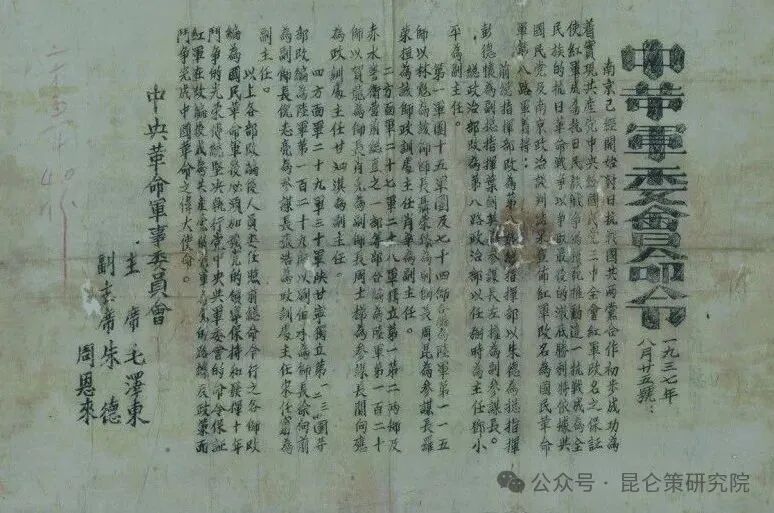 中革軍委會命令
一九三七年
八月廿五號：
南京已經開始對日抗戰國共兩黨合作初步成功為
着實現共產党中央給國民党三中全會紅軍改名之保証
使紅軍成為抗日民族戰爭的模範推動這一抗戰成為全
民族的抗日革命戰爭以爭取最後的澈底勝利特依據共
國民党及南京政治談判結果宣佈紅軍改名為國民革命
軍第八路軍着將：
前總指揮部改為第八路總指揮部以朱德為總指揮
彭德懷為副總指揮葉劍英為參謀長左權為副參謀長。
總政治部改為第八路政治部以任弼時為主任鄧小
平為副主任。
第一軍團十五軍團及七十四師合編為陸軍第一一五
師以林彪為該師師長聶榮臻為副師長周昆為參謀長羅
榮桓為該師政訓處主任肖華為副主任。
二方面軍二十七軍二十八軍獨立第一第二兩師及
赤水警衛營前總直之一部等部合編為陸軍第一百二十
師以賀龍為師長肖克為副師長周士梯為參謀長關向應
為政訓處主任甘泗淇為副主任。
四方面軍二十九軍三十軍陝甘寧獨立第一二三四團等
部改編為陸軍第一百二十九師以劉伯承為師長徐向前
為副師長倪志亮為參謀長張浩為政訓處主任宋任窮為
副主任。
以上各部改編後人員委任照前總命令行之各師改
編為國民革命軍後必須加強党的領導保持和發揚十年
鬥爭的光榮傳統堅決執行党中央與軍委會的命令保証
紅軍在改編後成為共產党的黨軍為党的路線及政策而
鬥爭完成中國革命之偉大使命。
中央革命軍事委員會
主席毛澤東
副主席朱德
周恩來
公众号·昆仑策研究院